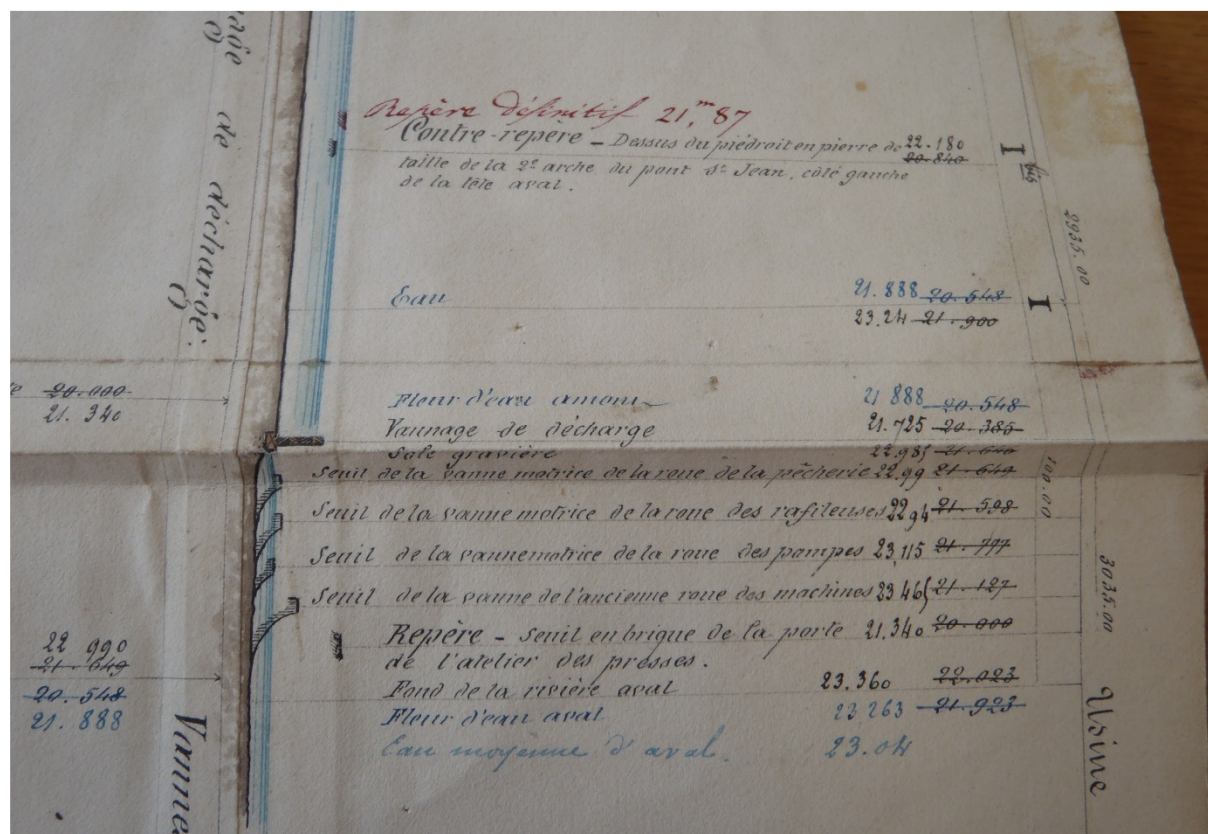 de décharge.
Repère définitif 21,ᵐ87
Contre-repère – Dessus du piédroit en pierre de 22.180
taille de la 2ᵉ arche du pont Sᵗ Jean, côté gauche 20.840
de la tête aval.
I bis
2935.00
Eau 21.888 20.548
23.24 21.900
I
20.000
21.340
Fleur d'eau amont 21 888 20.548
Vannage de décharge 21.725 20.385
Sole gravière 22.985 21.640
Seuil de la vanne motrice de la roue de la pêcherie 22.99 21.649
100.00
Seuil de la vanne motrice de la roue des rafileuses 22 94 21.598
Seuil de la vanne motrice de la roue des pompes 23,115 21.777
Seuil de la vanne de l'ancienne roue des machines 23 465 21.127
3035.00
Repère – Seuil en brique de la porte 21.340 20.000
de l'atelier des presses.
Fond de la rivière aval 23.360 22.023
Fleur d'eau aval 23 263 21.923
Eau moyenne d'aval. 23.04
22 990
21.649
20.548
21.888
Vanne
Usine